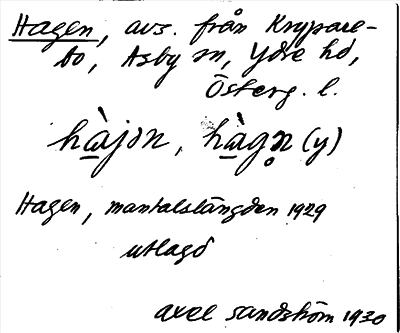 Hagen, avs. från Krypare-
bo, Asby sn, Ydre hd,
Österg. l.
hàjən, hàgn̥ (y)
Hagen, mantalslängden 1929
utlagd
Axel Sandström 1930